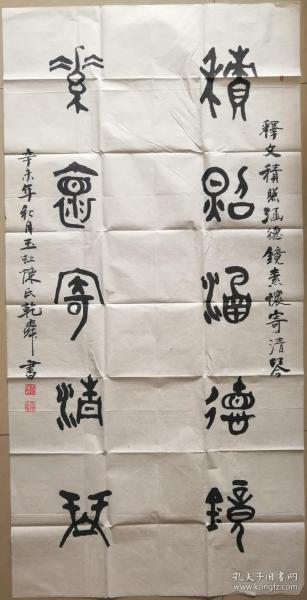 釋文積照涵德鏡素懷寄清琴
積照涵德鏡
素懷寄清琹
辛未年秋月玉
陳氏乾
書
孔夫子旧书网